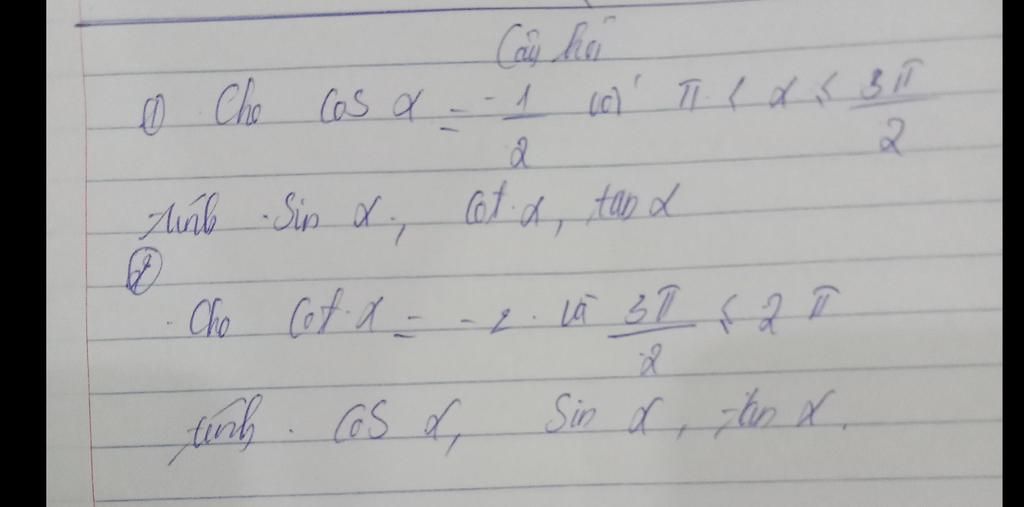 Câu hỏi
① Cho cos α = -1/2 với π < α < 3π/2
tính sin α, cot α, tan α
②
Cho cot α = -2 và 3π/2 < 2π
tính cos α, sin α, tan α.